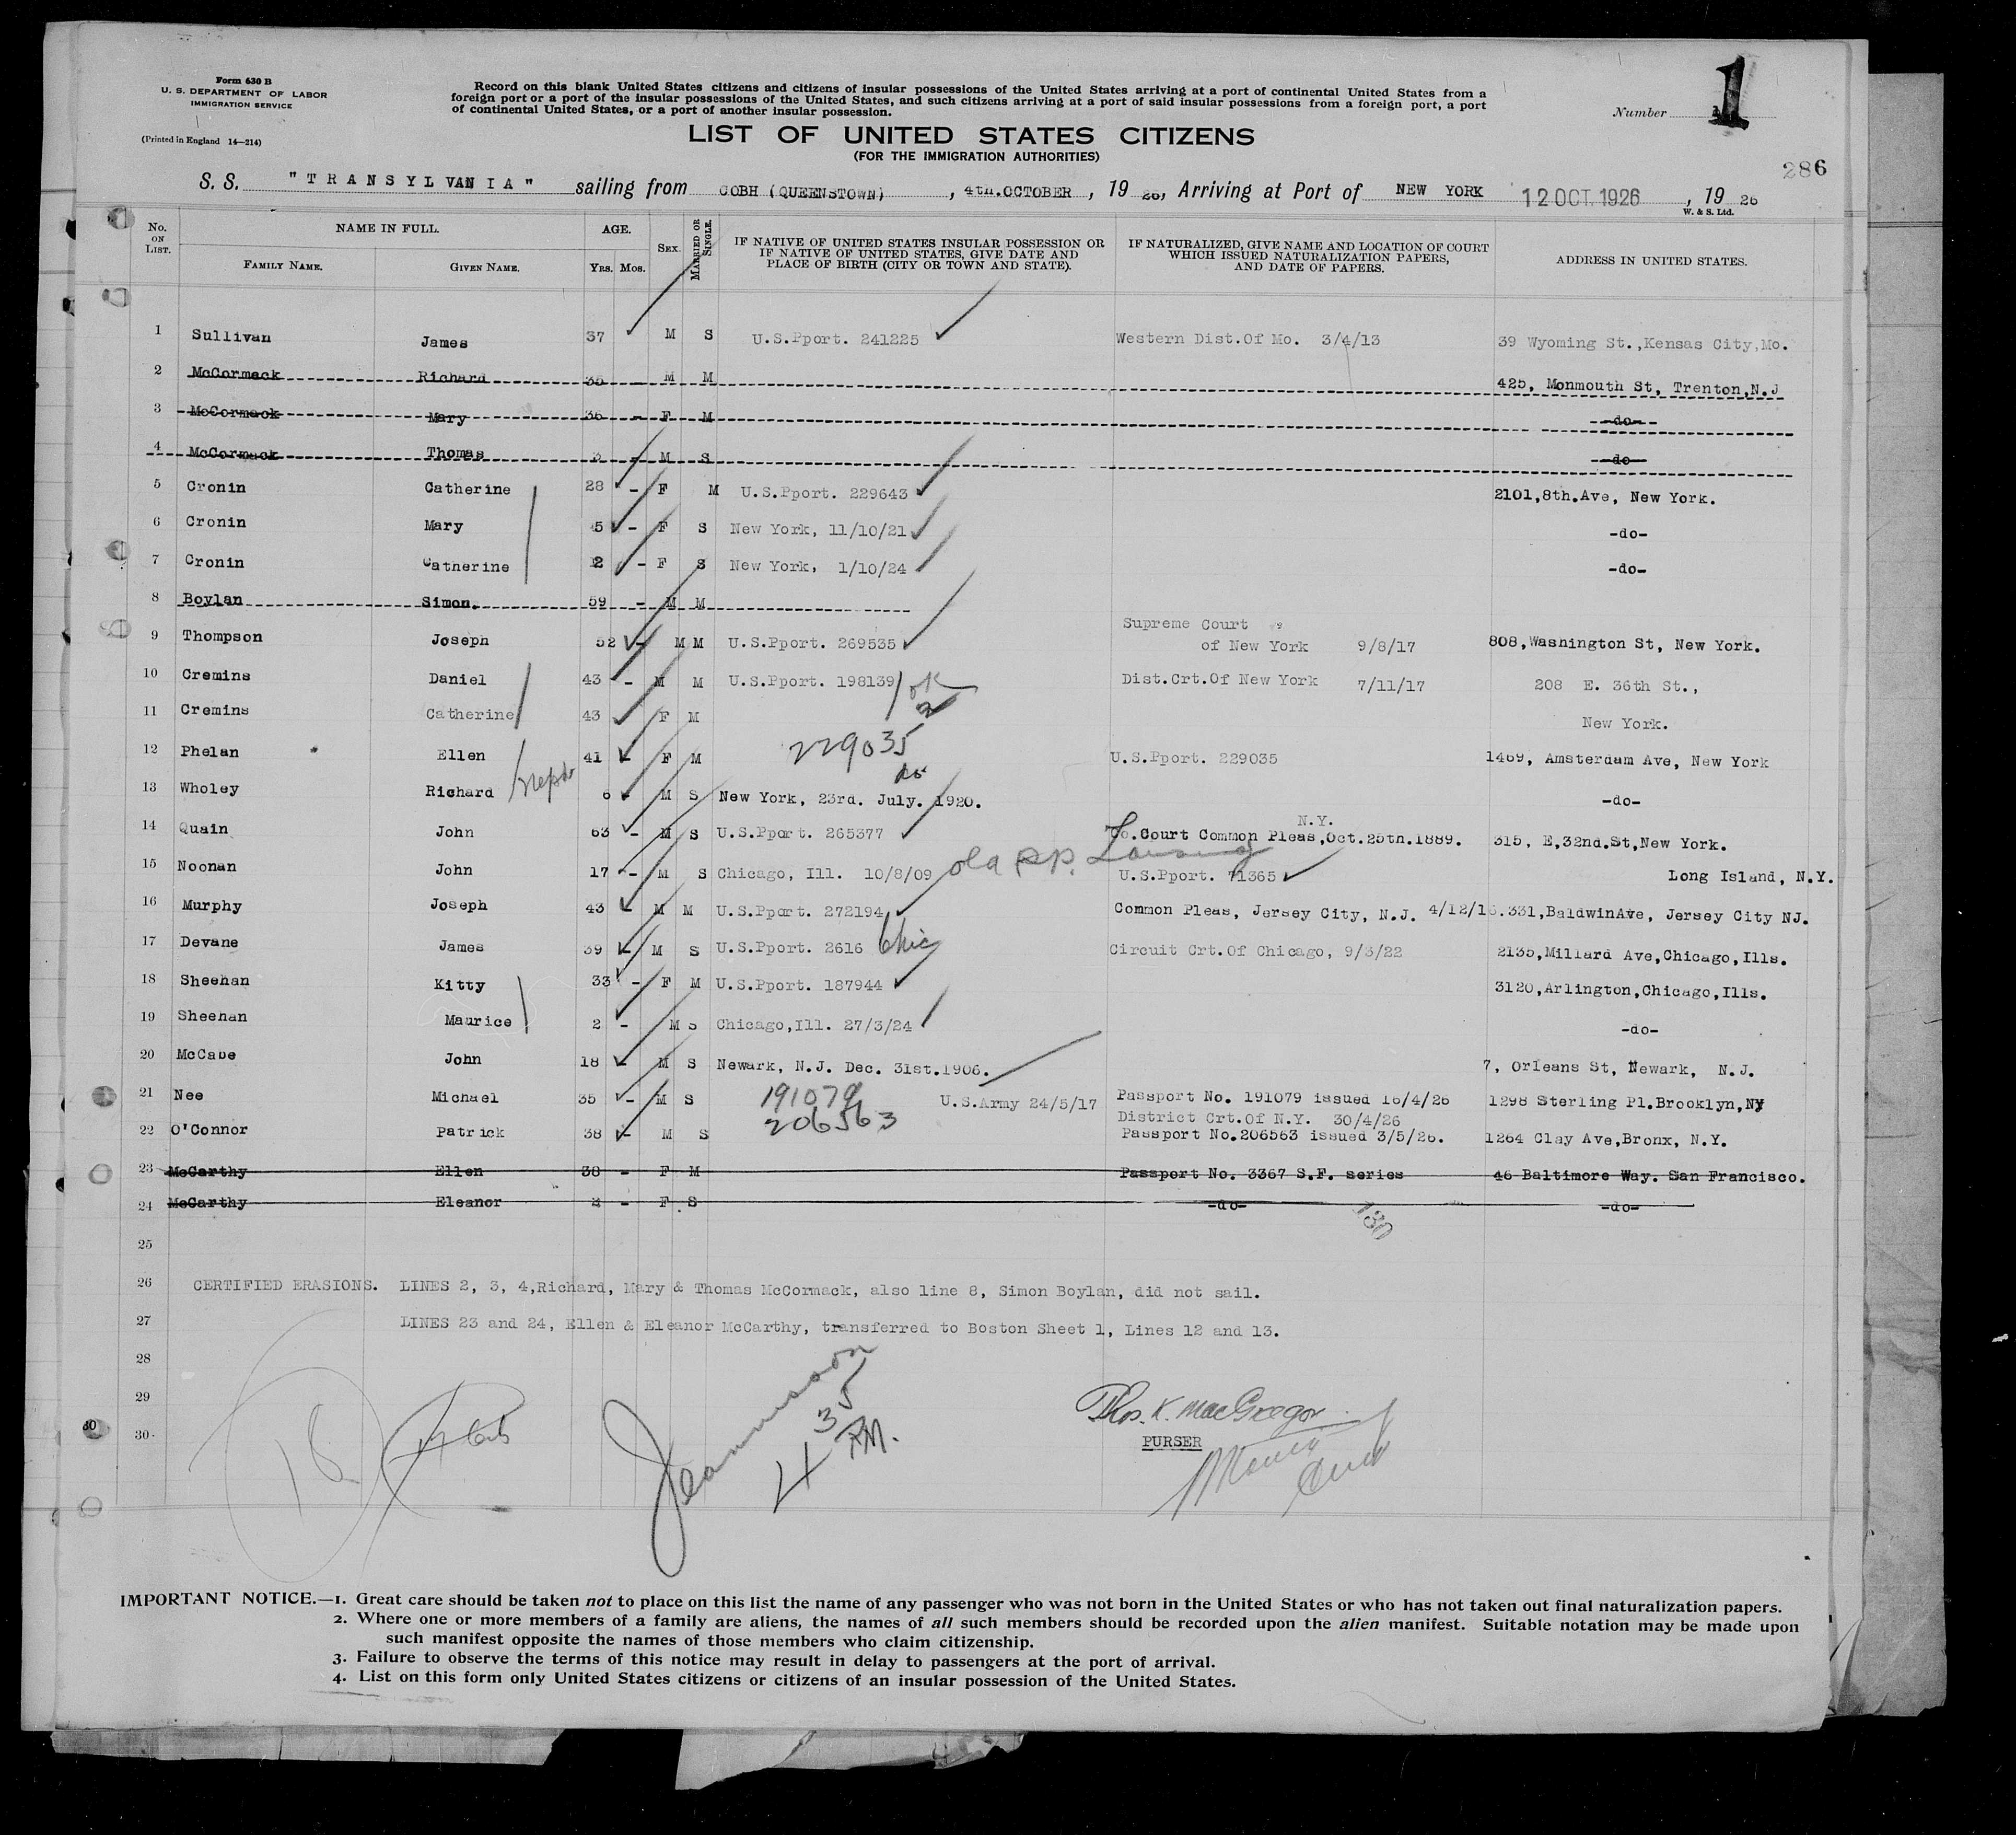 Form 630 B
U. S. DEPARTMENT OF LABOR
IMMIGRATION SERVICE
(Printed in England 14—214)
Record on this blank United States citizens and citizens of insular possessions of the United States arriving at a port of continental United States from a
foreign port or a port of the insular possessions of the United States, and such citizens arriving at a port of said insular possessions from a foreign port, a port
of continental United States, or a port of another insular possession.
Number 1
LIST OF UNITED STATES CITIZENS
(FOR THE IMMIGRATION AUTHORITIES)
286
S. S. "TRANSYLVANIA" sailing from COBH (QUEENSTOWN), 4th.OCTOBER, 19 26, Arriving at Port of NEW YORK 12 OCT 1926, 19 26
W. & S. Ltd.
No. ON LIST. NAME IN FULL. FAMILY NAME. GIVEN NAME. AGE. YRS. MOS. SEX. MARRIED OR SINGLE. IF NATIVE OF UNITED STATES INSULAR POSSESSION OR IF NATIVE OF UNITED STATES, GIVE DATE AND PLACE OF BIRTH (CITY OR TOWN AND STATE). IF NATURALIZED, GIVE NAME AND LOCATION OF COURT WHICH ISSUED NATURALIZATION PAPERS, AND DATE OF PAPERS. ADDRESS IN UNITED STATES.
1 Sullivan James 37 M S U.S.Pport. 241225 Western Dist.Of Mo. 3/4/13 39 Wyoming St.,Kensas City,Mo.
2 McCormack Richard 35 - M M 425, Monmouth St, Trenton,N.J
3 McCormack Mary 36 - F M -do-
4 McCormack Thomas 3 - M S -do-
5 Cronin Catherine 28 - F M U.S.Pport. 229643 2101,8th.Ave, New York.
6 Cronin Mary 5 - F S New York, 11/10/21 -do-
7 Cronin Catherine 2 - F S New York, 1/10/24 -do-
8 Boylan Simon. 59 - M M
9 Thompson Joseph 52 - M M U.S.Pport. 269535 Supreme Court of New York 9/8/17 808,Washington St, New York.
10 Cremins Daniel 43 - M M U.S.Pport. 198139 ok Dist.Crt.Of New York 7/11/17 208 E. 36th St.,
11 Cremins Catherine 43 F M New York.
12 Phelan Ellen 41 - F M 229035 U.S.Pport. 229035 1469, Amsterdam Ave, New York
13 Wholey Richard nephew 6 - M S do New York, 23rd. July. 1920. -do-
14 Quain John 63 - M S U.S.Pport. 265377 Co.Court Common Pleas, N.Y. Oct.25th.1889. 315, E,32nd.St,New York.
15 Noonan John 17 - M S Chicago, Ill. 10/8/09 old PP. Lansing U.S.Pport. 71365 Long Island, N.Y.
16 Murphy Joseph 43 - M M U.S.Pport. 272194 Common Pleas, Jersey City, N.J. 4/12/16. 331,BaldwinAve, Jersey City NJ.
17 Devane James 39 - M S U.S.Pport. 2616 Chic Circuit Crt.Of Chicago, 9/3/22 2135,Millard Ave,Chicago,Ills.
18 Sheehan Kitty 33 - F M U.S.Pport. 187944 3120,Arlington,Chicago,Ills.
19 Sheehan Maurice 2 - M S Chicago,Ill. 27/3/24 -do-
20 McCabe John 18 - M S Newark, N.J. Dec. 31st.1906. 7, Orleans St, Newark, N.J.
21 Nee Michael 35 - M S 191079 U.S.Army 24/5/17 Passport No. 191079 issued 16/4/26 1298 Sterling Pl.Brooklyn,NY
District Crt.Of N.Y. 30/4/26
22 O'Connor Patrick 38 - M S 206563 Passport No.206563 issued 3/5/26. 1264 Clay Ave,Bronx, N.Y.
23 McCarthy Ellen 38 - F M Passport No. 3367 S.F. series 46 Baltimore Way. San Francisco.
24 McCarthy Eleanor 2 - F S -do- -do-
130
25
26 CERTIFIED ERASIONS. LINES 2, 3, 4,Richard, Mary & Thomas McCormack, also line 8, Simon Boylan, did not sail.
27 LINES 23 and 24, Ellen & Eleanor McCarthy, transferred to Boston Sheet 1, Lines 12 and 13.
28
29
30
30
4 35 P.M.
Thos. K. MacGregor
PURSER
IMPORTANT NOTICE.—1. Great care should be taken not to place on this list the name of any passenger who was not born in the United States or who has not taken out final naturalization papers.
2. Where one or more members of a family are aliens, the names of all such members should be recorded upon the alien manifest. Suitable notation may be made upon
such manifest opposite the names of those members who claim citizenship.
3. Failure to observe the terms of this notice may result in delay to passengers at the port of arrival.
4. List on this form only United States citizens or citizens of an insular possession of the United States.